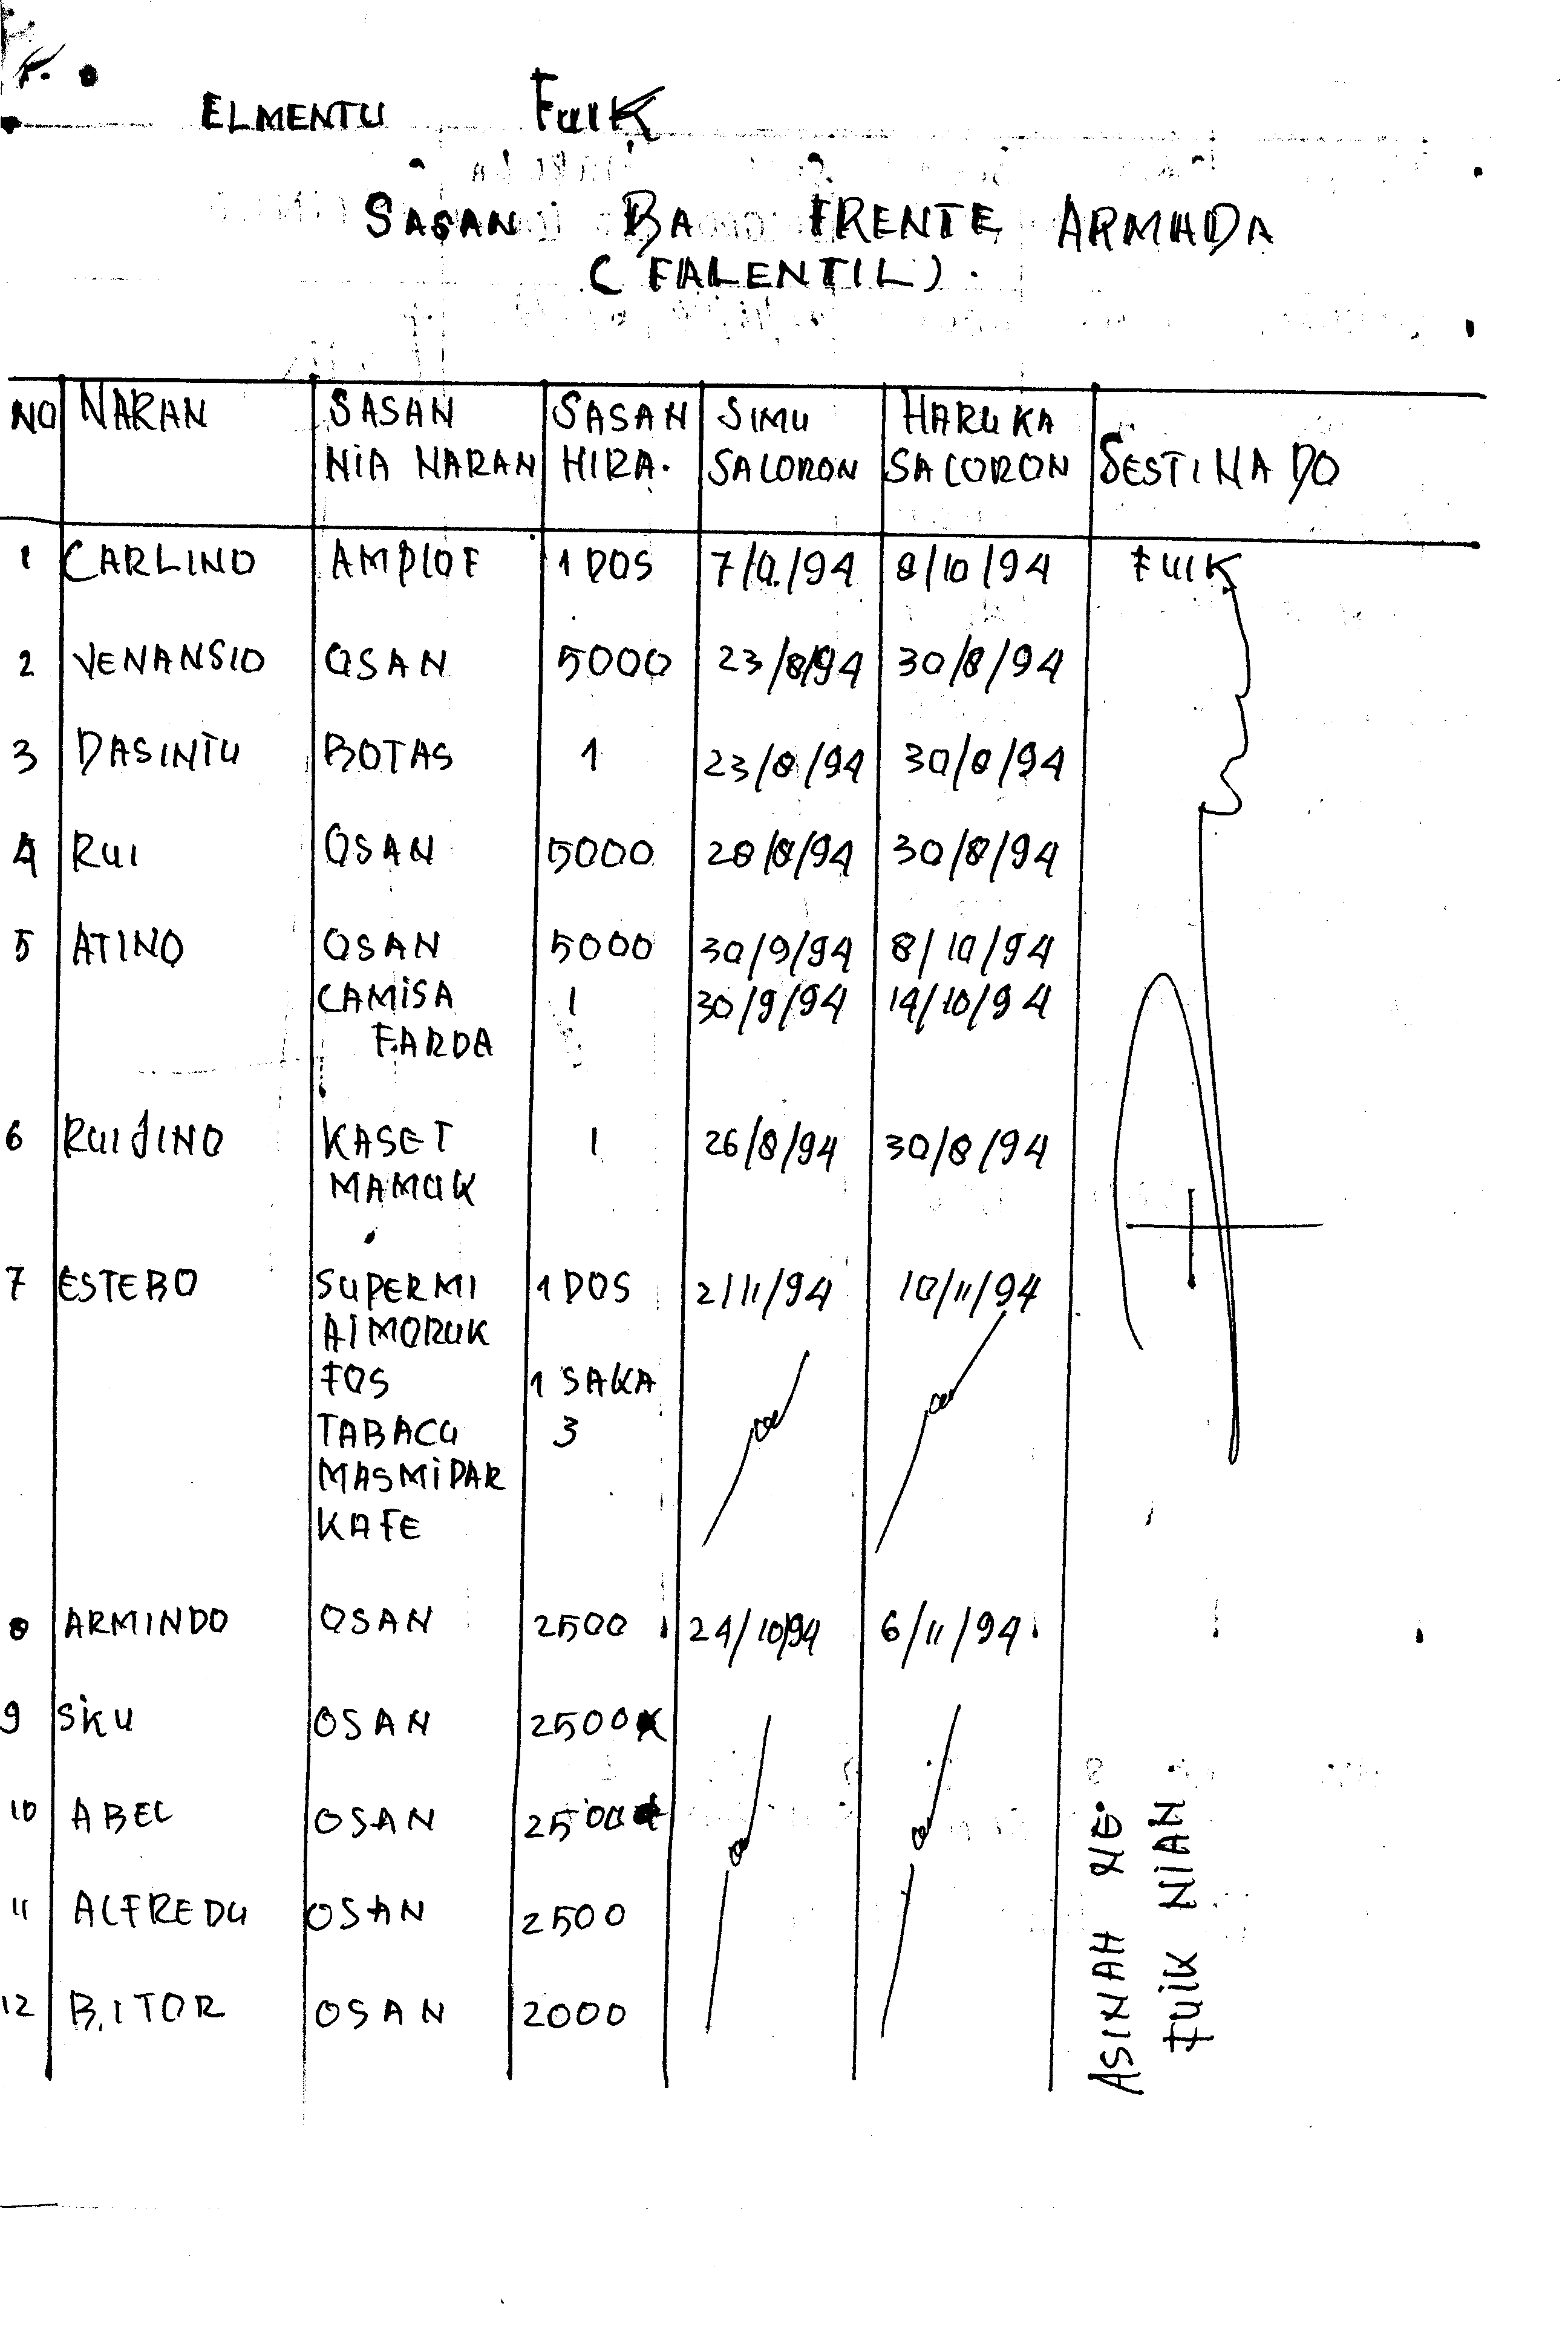 ELMENTU FUIK
SASAN BA FRENTE ARMADA
(FALENTIL).
NO NARAN SASAN NIA NARAN SASAN HIRA. SIMU SALORON HARUKA SALORON DESTINADO
1 CARLINO AMPLOF 1 DOS 8/10/94 FUIK
2 VENANSIO OSAN 5000 23/8/94 30/8/94
3 DASINTU BOTAS 1 23/8/94 30/8/94
4 RUI OSAN 5000 28/8/94 30/8/94
5 ATINO OSAN 5000 30/9/94 8/10/94
CAMISA 1 30/9/94 14/10/94
FARDA
6 RUIJINO KASET 1 26/8/94 30/8/94
MAMUK
7 ESTEBO SUPERMI 1 DOS 2/11/94 10/11/94
AIMORUK
FOS 1 SAKA
TABACU 3
MASMIDAR
KAFE
8 ARMINDO OSAN 2500 24/10/94 6/11/94
9 SIKU OSAN 2500
10 ABEL OSAN 2500
11 ALFREDU OSAN 2500
12 BITOR OSAN 2000
ASINAH NE
FUIK NIAN